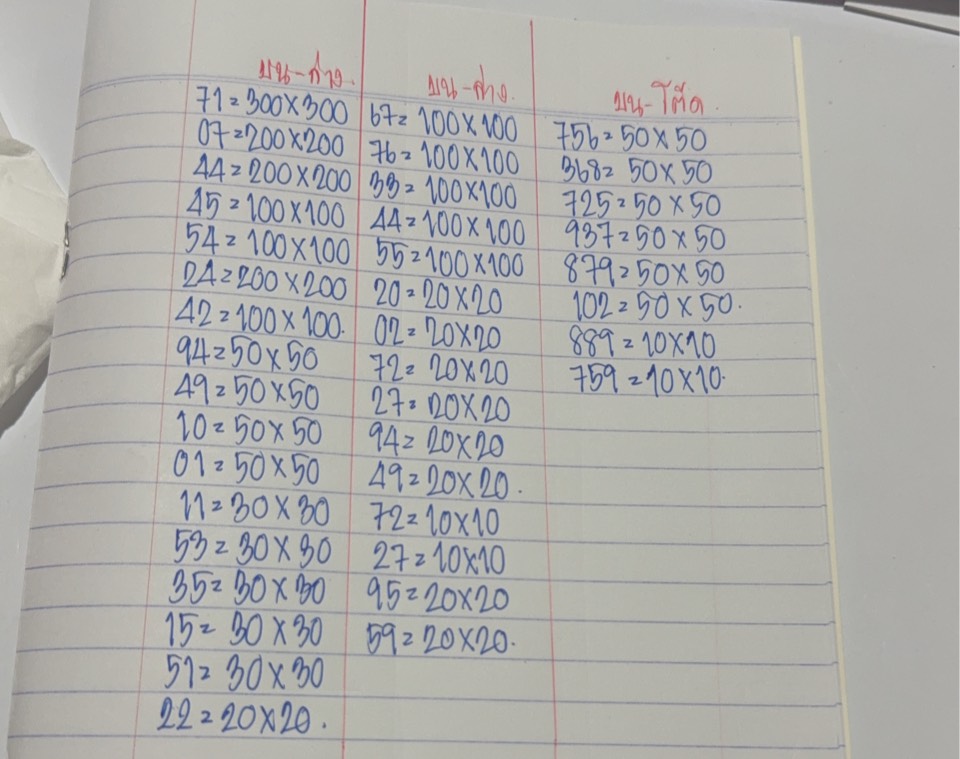 บน-ล่าง.
71=300X300
07=200X200
44=200X200
45=100X100
54=100X100
24=200X200
42=100X100.
94=50X50
49=50X50
10=50X50
01=50X50
11=30X30
53=30X30
35=30X30
15=30X30
51=30X30
22=20X20.
บน-ล่าง.
67=100X100
76=100X100
33=100X100
44=100X100
55=100X100
20=20X20
02=20X20
72=20X20
27=20X20
94=20X20
49=20X20.
72=10X10
27=10X10
95=20X20
59=20X20.
บน-โต๊ด.
756=50X50
368=50X50
725=50X50
937=50X50
879=50X50
102=50X50.
889=10X10
759=10X10.